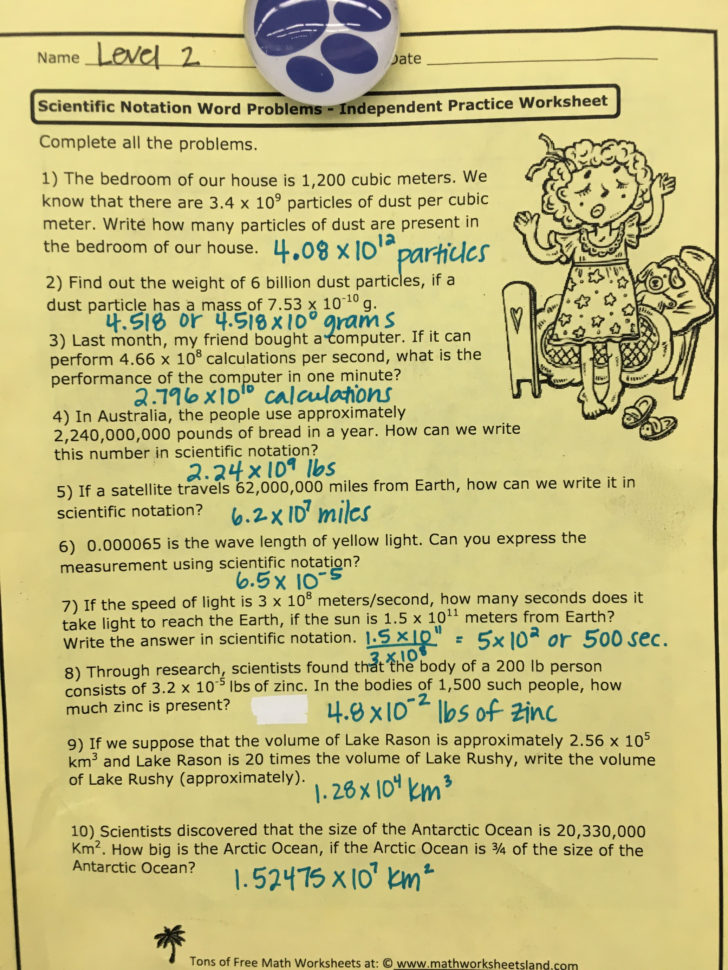 Name Level 2 Date
Scientific Notation Word Problems - Independent Practice Worksheet
Complete all the problems.
1) The bedroom of our house is 1,200 cubic meters. We
know that there are 3.4 x 10⁹ particles of dust per cubic
meter. Write how many particles of dust are present in
the bedroom of our house. 4.08 x 10¹² particles
2) Find out the weight of 6 billion dust particles, if a
dust particle has a mass of 7.53 x 10⁻¹⁰ g.
4.518 or 4.518 x 10⁰ grams
3) Last month, my friend bought a computer. If it can
perform 4.66 x 10⁸ calculations per second, what is the
performance of the computer in one minute?
2.796 x 10¹⁰ calculations
4) In Australia, the people use approximately
2,240,000,000 pounds of bread in a year. How can we write
this number in scientific notation?
2.24 x 10⁹ lbs
5) If a satellite travels 62,000,000 miles from Earth, how can we write it in
scientific notation? 6.2 x 10⁷ miles
6) 0.000065 is the wave length of yellow light. Can you express the
measurement using scientific notation?
6.5 x 10⁻⁵
7) If the speed of light is 3 x 10⁸ meters/second, how many seconds does it
take light to reach the Earth, if the sun is 1.5 x 10¹¹ meters from Earth?
Write the answer in scientific notation. 1.5 x 10¹¹ = 5 x 10² or 500 sec.
3 x 10⁸
8) Through research, scientists found that the body of a 200 lb person
consists of 3.2 x 10⁻⁵ lbs of zinc. In the bodies of 1,500 such people, how
much zinc is present? 4.8 x 10⁻² lbs of zinc
9) If we suppose that the volume of Lake Rason is approximately 2.56 x 10⁵
km³ and Lake Rason is 20 times the volume of Lake Rushy, write the volume
of Lake Rushy (approximately).
1.28 x 10⁴ km³
10) Scientists discovered that the size of the Antarctic Ocean is 20,330,000
Km². How big is the Arctic Ocean, if the Arctic Ocean is ¾ of the size of the
Antarctic Ocean?
1.52475 x 10⁷ km²
Tons of Free Math Worksheets at: © www.mathworksheetsland.com